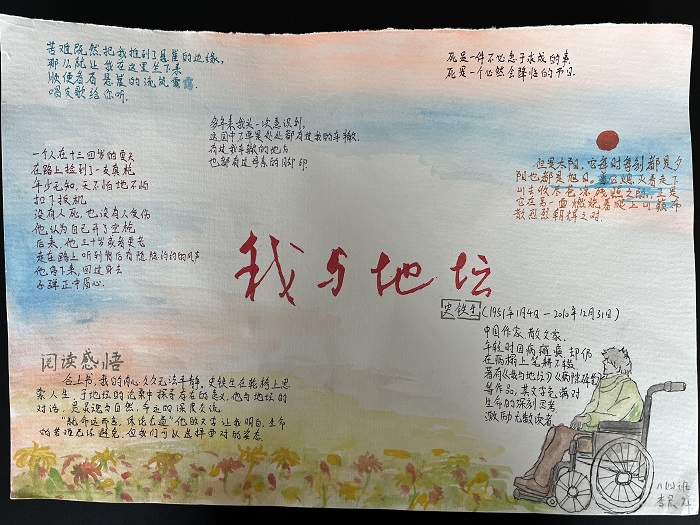 苦难既然把我推到了悬崖的边缘,
那么就让我在这里坐下来
顺便看看悬崖的流岚雾霭
唱支歌给你听.
死是一件不必急于求成的事
死是一个必然会降临的节日.
多年来我头一次意识到,
这园中不单是处处都有过我的车辙.
有过我车辙的地方
也都有过母亲的脚印.
一个人在十三四岁的夏天
在路上捡到了一支真枪
年少无知,天不怕地不怕
扣下扳机
没有人死,也没有人受伤
他认为自己开了空枪
后来,他三十岁或者更老
走在路上听到背后有隐隐约约的风声
他停下来,回过身去
子弹正中眉心.
但是太阳,它每时每刻都是夕
阳也都是旭日。当它熄灭着走下
山去收尽苍凉残照之际,正是
它在另一面燃烧着爬上山巅布
散烈烈朝辉之时.
我与地坛
史铁生(1951年1月4日—2010年12月31日)
中国作家、散文家.
年轻时因病瘫痪却仍
在病榻上笔耕不辍
著有《我与地坛》《病隙碎笔》
等作品,其文字充满对
生命的深刻思考
激励无数读者.
阅读感悟
合上书,我的内心久久无法平静。史铁生在轮椅上思
索人生,于地坛的边寨中探寻存在的意义,他与地坛的
对话,是灵魂与自然、命运的深度交流。
"就命运而言,休论公道"他的文字让我明白,生命
的苦难无法避免,但我们可以选择面对的姿态.
八四班